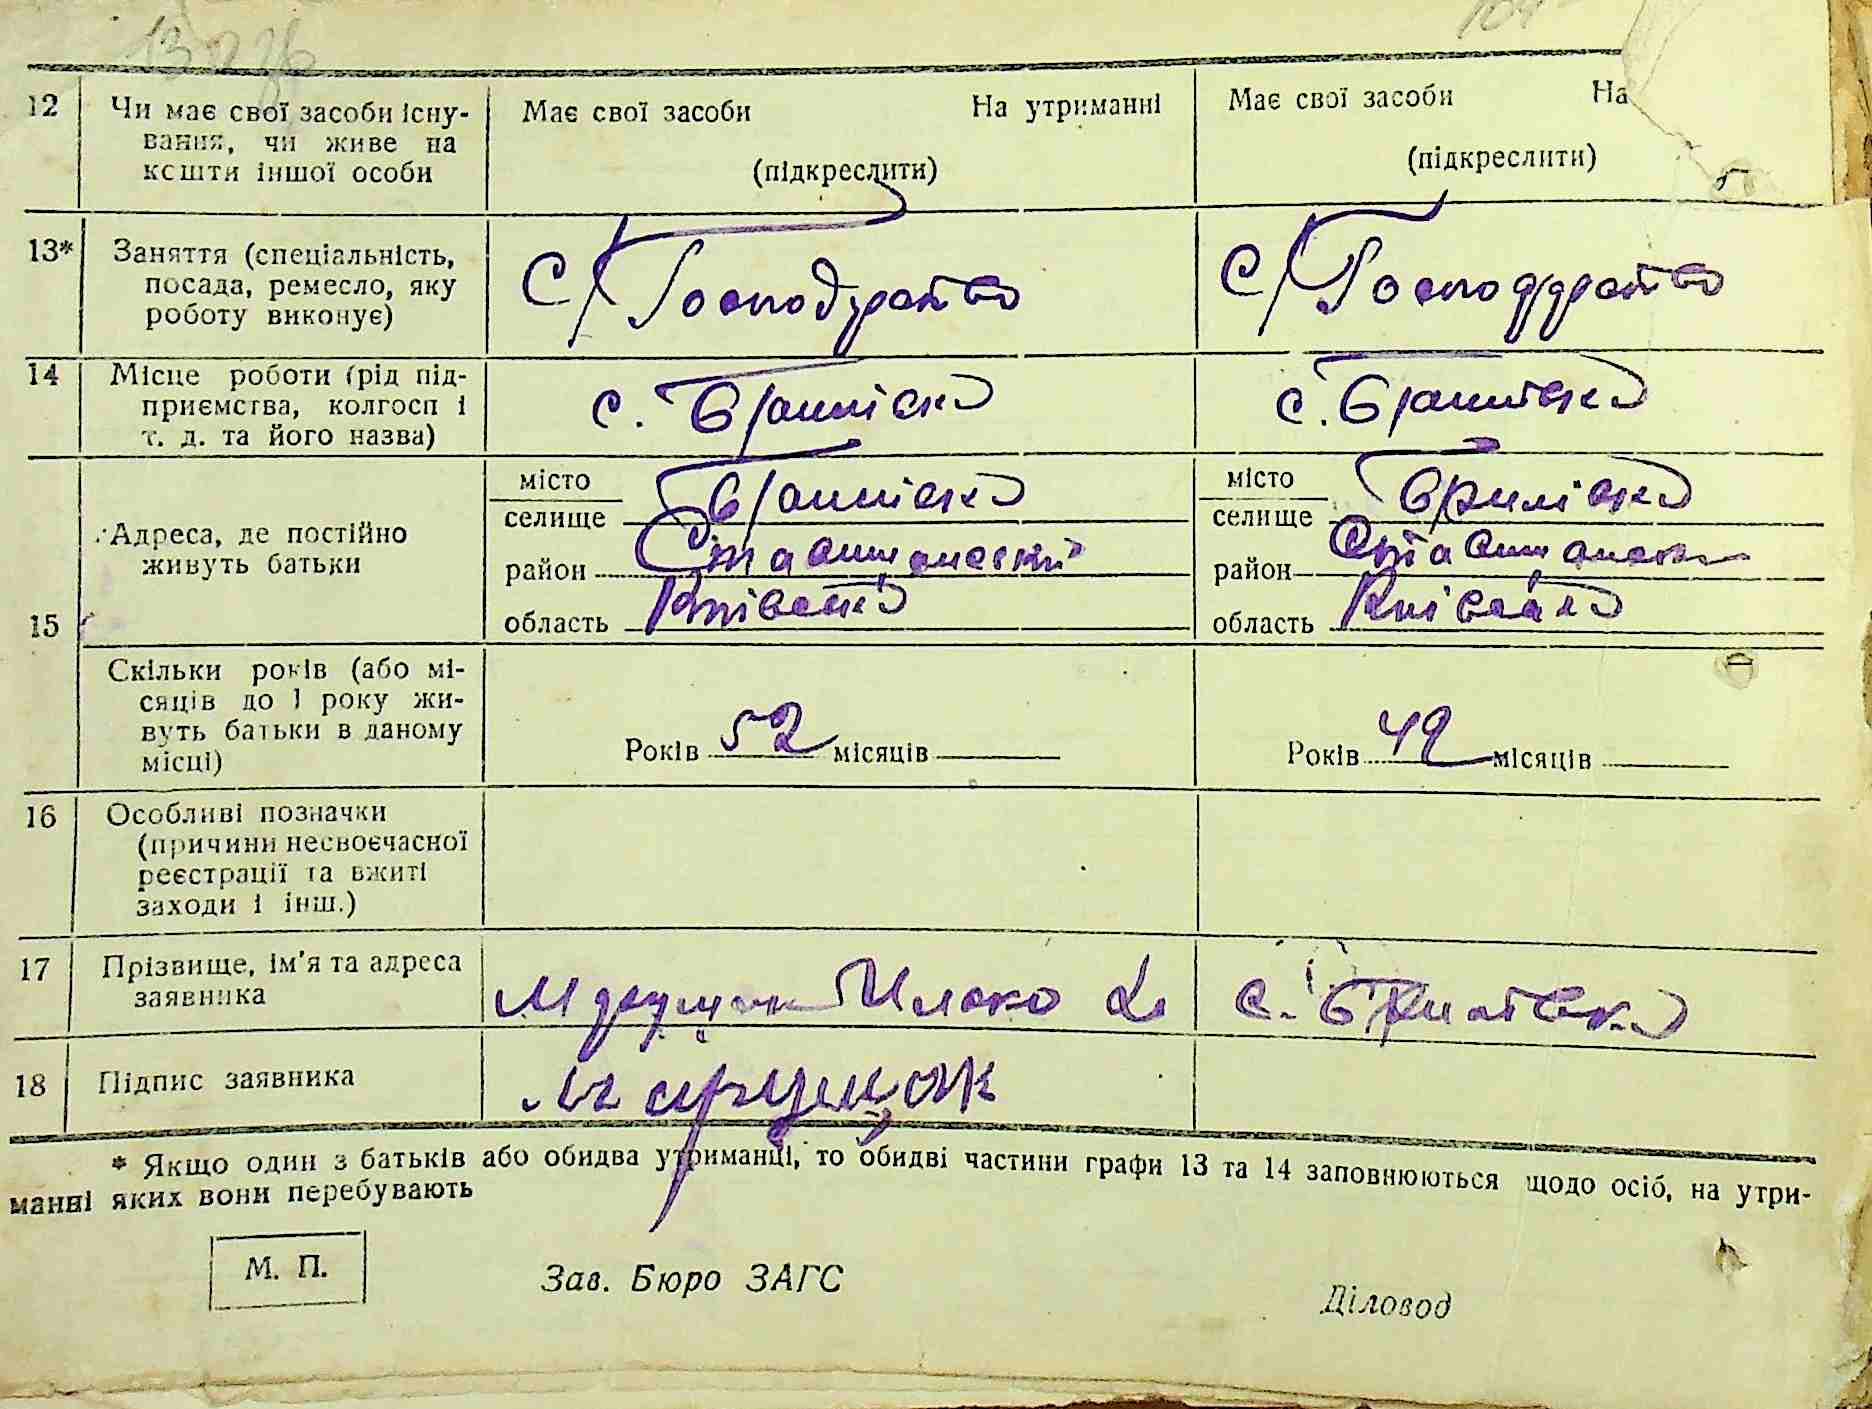 12 Чи має свої засоби існу-
вання, чи живе на
кошти іншої особи
Має свої засоби На утриманні
(підкреслити)
Має свої засоби На
(підкреслити)
13* Заняття (спеціальність,
посада, ремесло, яку
роботу виконує)
С/Господурство
С/Господурство
14 Місце роботи (рід під-
приємства, колгосп і
т. д. та його назва)
с.
с.
15 Адреса, де постійно
живуть батьки
місто
селище
район Ставищанський
область Київська
місто
селище
район
область Київська
Скільки років (або мі-
сяців до 1 року жи-
вуть батьки в даному
місці)
Років 52 місяців
Років 42 місяців
16 Особливі позначки
(причини несвоєчасної
реєстрації та вжиті
заходи і інш.)
17 Прізвище, ім'я та адреса
заявника
с.
18 Підпис заявника
* Якщо один з батьків або обидва утриманці, то обидві частини графи 13 та 14 заповнюються щодо осіб, на утри-
манні яких вони перебувають
М. П.
Зав. Бюро ЗАГС
Діловод